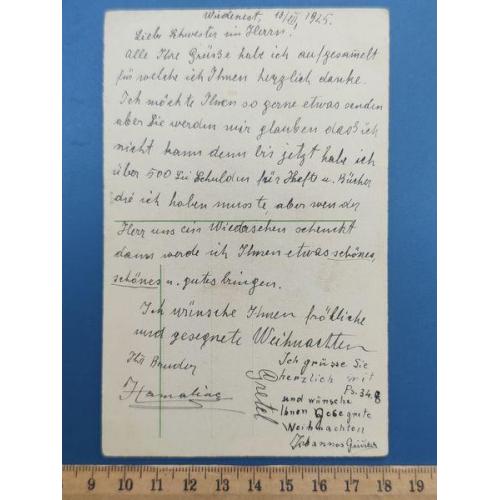 Wiedenest, 13/XII. 1925.
Liebe Schwester im Herrn!
Alle Ihre Grüsse habe ich aufgesamelt
für welche ich Ihnen herzlich danke.
Ich möchte Ihnen so gerne etwas senden
aber Sie werden mir glauben dass ich
nicht kann denn bis jetzt habe ich
über 500 Lei Schulden für Hefte u. Bücher
die ich haben musste, aber wen der
Herr uns ein Wiedersehen schenckt
dann werde ich Ihnen etwas schönes,
schönes u. gutes bringen.
Ich wünsche Ihnen fröhliche
und gesegnete Weihnachten
Ihr Bruder
Gretel
Ich grüsse Sie
herzlich mit
Ps. 34.8
und wünsche
Ihnen Gesegnete
Weihnachten
Johannes
9 10 11 12 13 14 15 16 17 18 19